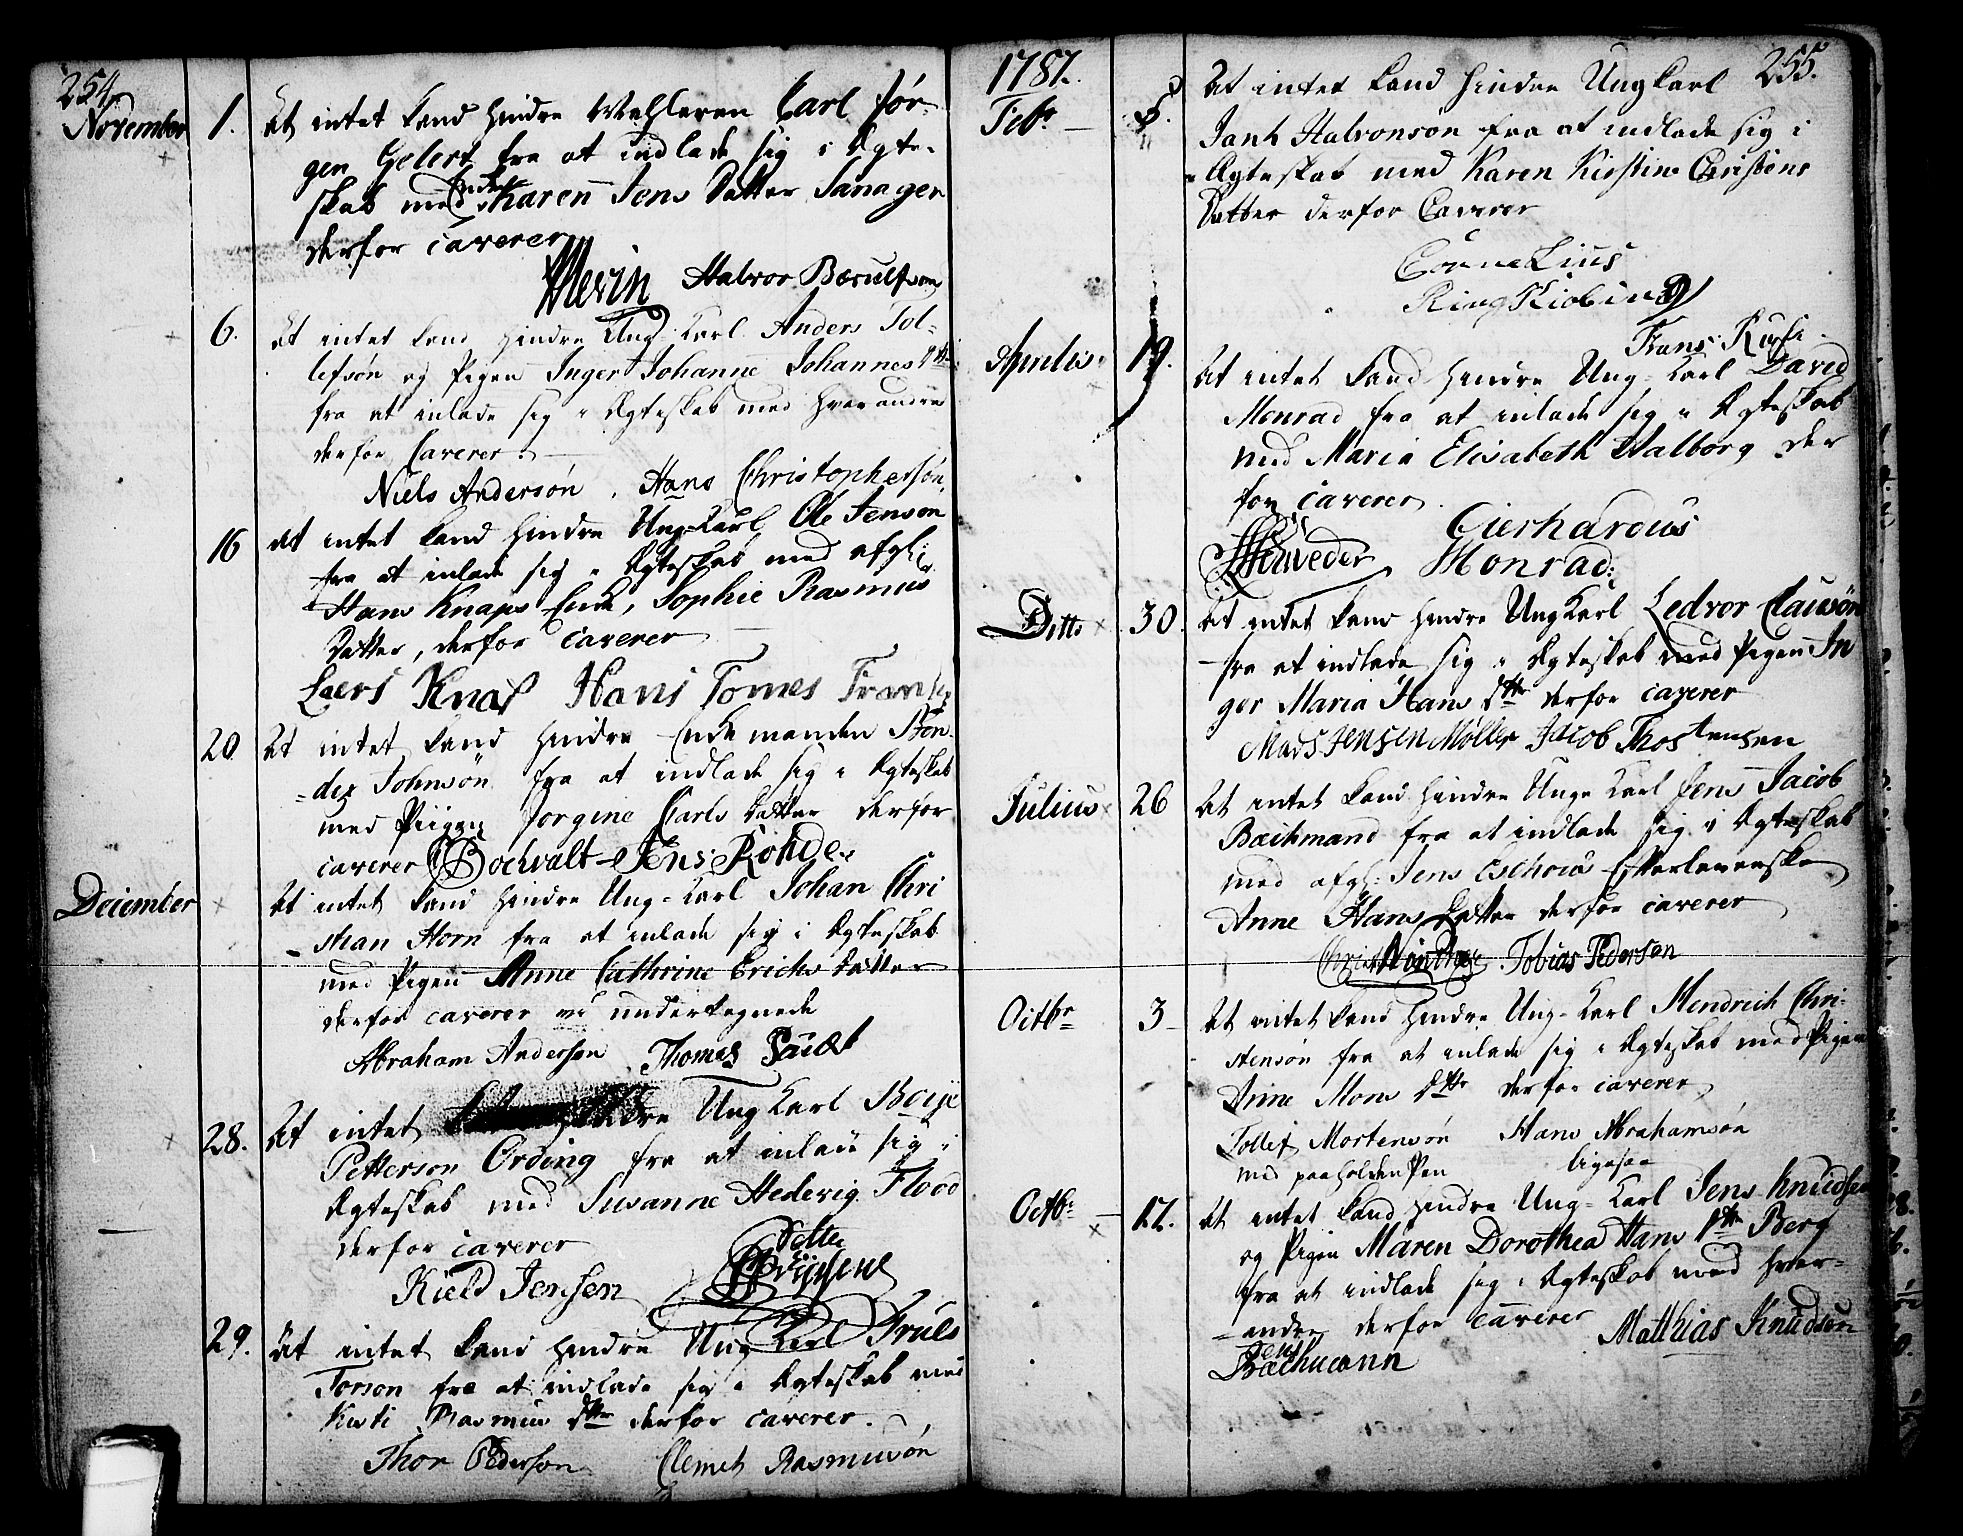 254
November 1. At intet kand hindre Mahleren Carl Jør-
gen Gelert fra at indlade sig i Ægte-
skab med Enken Karen Jens Datter Sanager
derfor caverer
Halvor Bærulfson
6. At intet kand hindre Ung-Karl Anders Tol-
lefsøn og Pigen Inger Johanne Johannes dttr
fra at inlade sig i Ægteskab med hverandre
derfor Caverer
Niels Andersøn, Hans Christophersøn
16 At intet kand hindre Ung-Karl Ole Jensøn
fra at inlade sig i Ægteskab med afgl:
Hans Knaps Enke, Sophie Rasmus
Datter, derfor caverer
Laers Knap Hans Tomes Fransen
20 At intet kand hindre Enke manden Bon-
=dex Johnsøn fra at indlade sig i Ægteskab
med Piigen Jorgine Carls Datter derfor
caverer Bochvalt Jens Rohde
December At intet kand hindre Ung-Karl Johan Chri
stian Horn fra at inlade sig i Ægteskab
med Pigen Anne Cathrine Erichs Datter
derfor caverer vi undertegnede
Abraham Andersen Thomes
28. At intet hindre Ung Karl Boije
Petterson Ording fra at inlade sig i
Ægteskab med Susanne Hedevig Flood
derfor caverer
Kield Jensen Petter
29. At intet kand hindre Ung Karl Truls
Torson fra at indlade sig i Ægteskab med
Kirsti Rasmus dttr derfor caverer.
Thor Pederson Clemet Rasmusøn
255.
1787.
Febr. At intet kand hindre Ung Karl
Jank Halvorsøn fra at indlade sig i
Ægteskab med Karen Kirstine Christens
Datter derfor Caverer
Cornelius
RingKiobing
Frans
Aprilis 19. At intet kand hindre Ung-Karl David
Monrad fra at inlade sig i Ægteskab
med Maria Elisabeth Walborg der
for caverer
Gierhardus
Schweder Monrad:
Ditto 30. At intet kand hindre Ung Karl Ledvor Clausøn
fra at indlade sig i Ægteskab med Pigen In
ger Maria Hans dttr derfor caverer
Mads Jensen Møller Jacob Thostensen
Julius 26 At intet kand hindre Unge Karl Jens Jacob
Bachmand fra at indlade sig i Ægteskab
med afgl: Jens Eschous Efterleverske
Anne Hans Datter derfor caverer
Tobias Pedersen
Octbr 3 At intet kand hindre Ung-Karl Hendrich Chri-
stensøn fra at inlade sig i Ægteskab med Pigen
Anne Mons dttr derfor caverer
Tollef Mortensøn Hans Abrahamsøn
med paaholden Pen ligesaa
Octbr 17. At intet kand hindre Ung-Karl Jens Knudsen
og Pigen Maren Dorothea Hans dttr Berg
fra at indlade sig i Ægteskab med hver-
andre derfor caverer Matthias Knudsøn
Jens
Bachmann